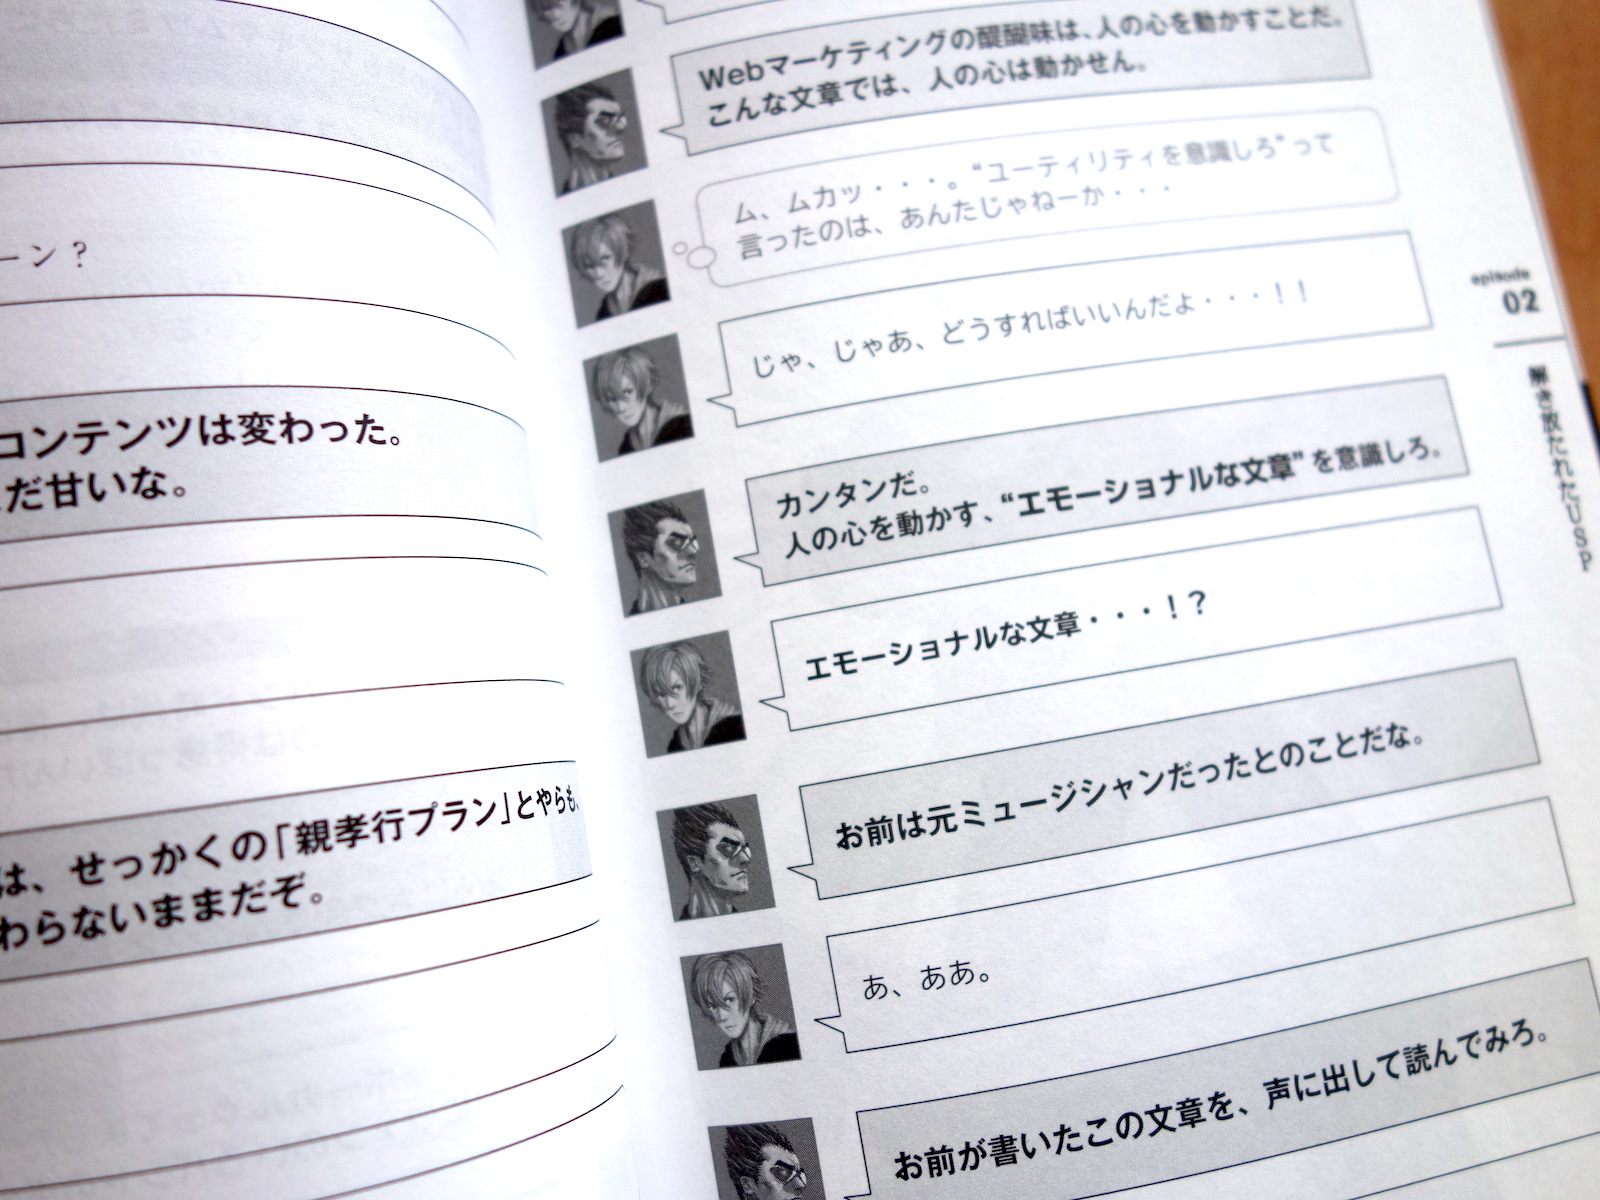 ーン？
コンテンツは変わった。
だ甘いな。
は、せっかくの「親孝行プラン」とやらも、
わらないままだぞ。
Webマーケティングの醍醐味は、人の心を動かすことだ。
こんな文章では、人の心は動かせん。
ム、ムカッ・・・。“ユーティリティを意識しろ”って
言ったのは、あんたじゃねーか・・・
じゃ、じゃあ、どうすればいいんだよ・・・！！
カンタンだ。
人の心を動かす、“エモーショナルな文章”を意識しろ。
エモーショナルな文章・・・！？
お前は元ミュージシャンだったとのことだな。
あ、ああ。
お前が書いたこの文章を、声に出して読んでみろ。
episode
02
解き放たれたUSP